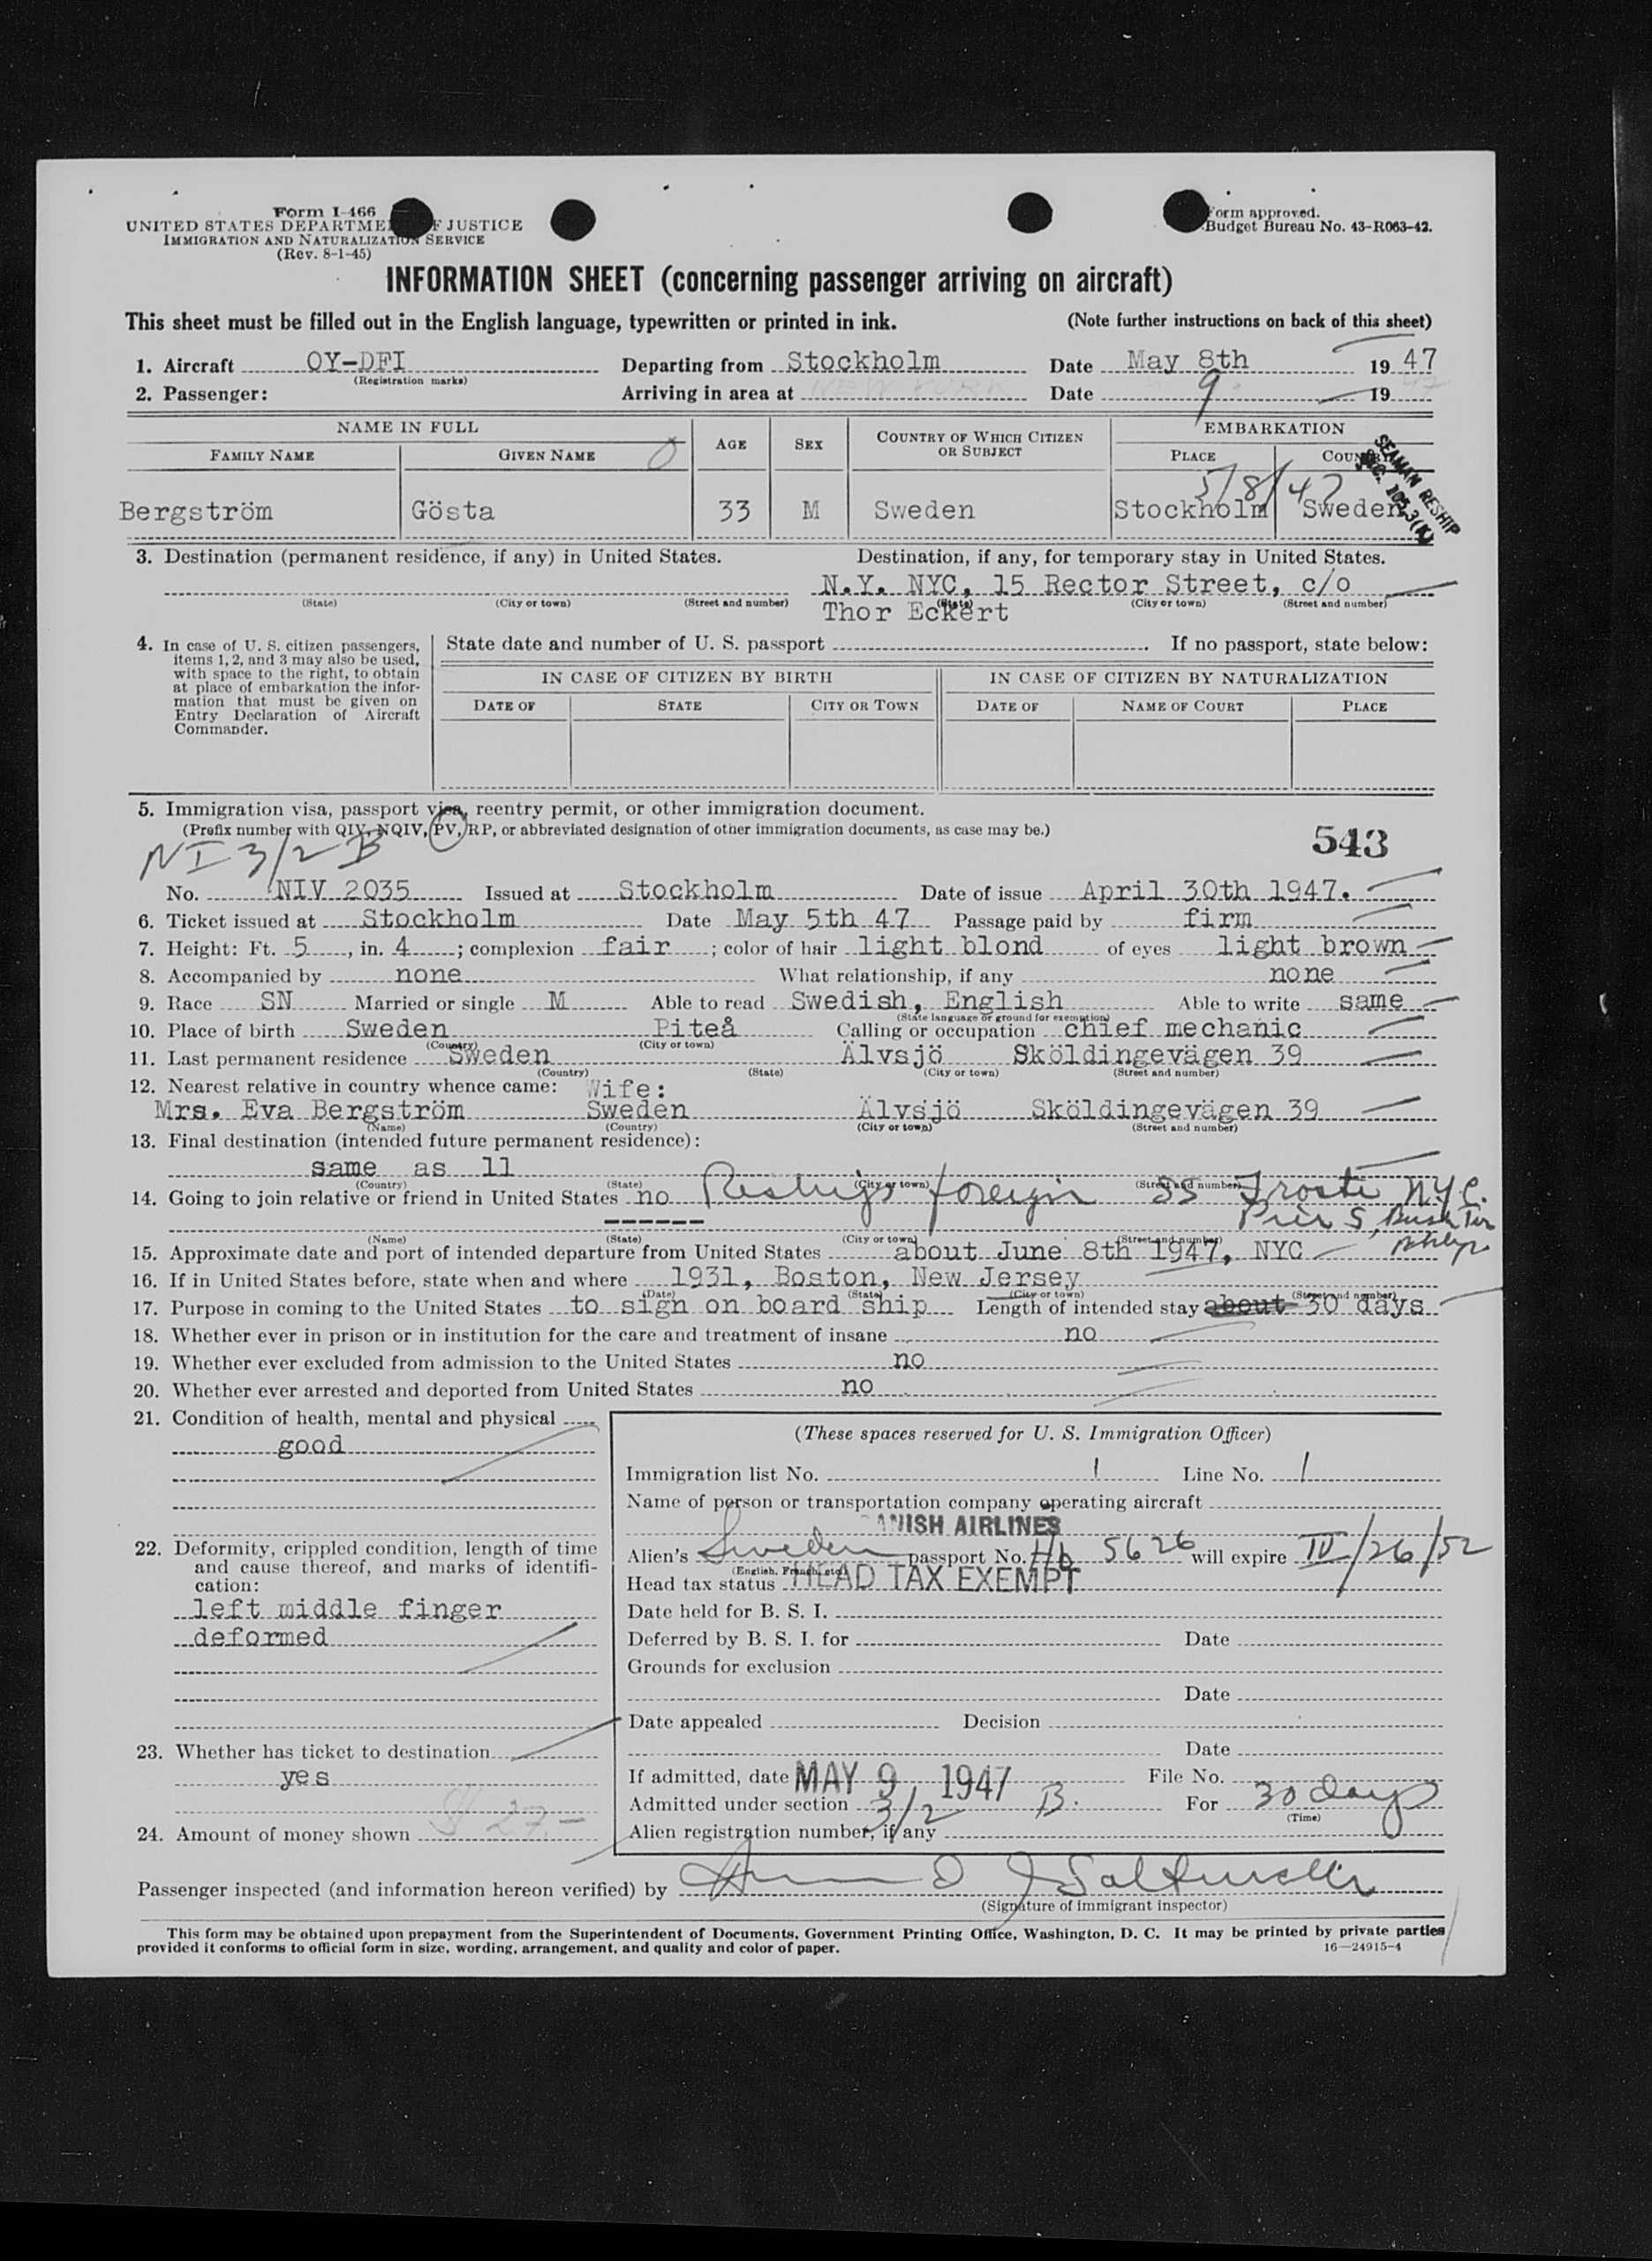 Form I-466
UNITED STATES DEPARTMENT OF JUSTICE
IMMIGRATION AND NATURALIZATION SERVICE
(Rev. 8-1-45)
Form approved.
Budget Bureau No. 43-R063-42.
INFORMATION SHEET (concerning passenger arriving on aircraft)
This sheet must be filled out in the English language, typewritten or printed in ink. (Note further instructions on back of this sheet)
1. Aircraft OY-DFI Departing from Stockholm Date May 8th 1947
(Registration marks)
2. Passenger: Arriving in area at NEW YORK Date 9 1947
NAME IN FULL AGE SEX COUNTRY OF WHICH CITIZEN OR SUBJECT EMBARKATION
FAMILY NAME GIVEN NAME PLACE COUNTRY
SEAMAN RESHIP
5/8/47
Bergström Gösta 33 M Sweden Stockholm Sweden
3. Destination (permanent residence, if any) in United States. Destination, if any, for temporary stay in United States.
N.Y. NYC, 15 Rector Street, c/o
(State) (City or town) (Street and number) (State) (City or town) (Street and number)
Thor Eckert
4. In case of U. S. citizen passengers, items 1, 2, and 3 may also be used, with space to the right, to obtain at place of embarkation the information that must be given on Entry Declaration of Aircraft Commander.
State date and number of U. S. passport . If no passport, state below:
IN CASE OF CITIZEN BY BIRTH IN CASE OF CITIZEN BY NATURALIZATION
DATE OF STATE CITY OR TOWN DATE OF NAME OF COURT PLACE
5. Immigration visa, passport visa, reentry permit, or other immigration document.
(Prefix number with QIV, NQIV, PV, RP, or abbreviated designation of other immigration documents, as case may be.)
543
NI 3/2 B
No. NIV 2035 Issued at Stockholm Date of issue April 30th 1947.
6. Ticket issued at Stockholm Date May 5th 47 Passage paid by firm
7. Height: Ft. 5, in. 4; complexion fair; color of hair light blond of eyes light brown
8. Accompanied by none What relationship, if any none
9. Race SN Married or single M Able to read Swedish, English Able to write same
(State language or ground for exemption)
10. Place of birth Sweden Piteå Calling or occupation chief mechanic
(Country) (City or town)
11. Last permanent residence Sweden Älvsjö Sköldingevägen 39
(Country) (State) (City or town) (Street and number)
12. Nearest relative in country whence came: Wife:
Mrs. Eva Bergström Sweden Älvsjö Sköldingevägen 39
(Name) (Country) (City or town) (Street and number)
13. Final destination (intended future permanent residence):
same as 11
(Country) (State) (City or town) (Street and number)
14. Going to join relative or friend in United States no Reships foreign SS Froste NYC.
Pier 5, Bush Ter
(Name) (State) (City or town) (Street and number)
Bklyn
15. Approximate date and port of intended departure from United States about June 8th 1947, NYC
16. If in United States before, state when and where 1931, Boston, New Jersey
(Date) (State) (City or town) (Street and number)
17. Purpose in coming to the United States to sign on board ship Length of intended stay about 30 days
18. Whether ever in prison or in institution for the care and treatment of insane no
19. Whether ever excluded from admission to the United States no
20. Whether ever arrested and deported from United States no
21. Condition of health, mental and physical
good
22. Deformity, crippled condition, length of time and cause thereof, and marks of identification:
left middle finger
deformed
23. Whether has ticket to destination
yes
24. Amount of money shown $ 27.-
(These spaces reserved for U. S. Immigration Officer)
Immigration list No. 1 Line No. 1
Name of person or transportation company operating aircraft
DANISH AIRLINES
Alien's Sweden passport No. Hb 5626 will expire IV/26/52
(English, French, etc.)
Head tax status HEAD TAX EXEMPT
Date held for B. S. I.
Deferred by B. S. I. for Date
Grounds for exclusion
Date
Date appealed Decision
Date
If admitted, date MAY 9 1947 File No.
Admitted under section 3/2 B. For 30 days
(Time)
Alien registration number, if any
Passenger inspected (and information hereon verified) by
(Signature of immigrant inspector)
This form may be obtained upon prepayment from the Superintendent of Documents, Government Printing Office, Washington, D. C. It may be printed by private parties
provided it conforms to official form in size, wording, arrangement, and quality and color of paper. 16—24915-4